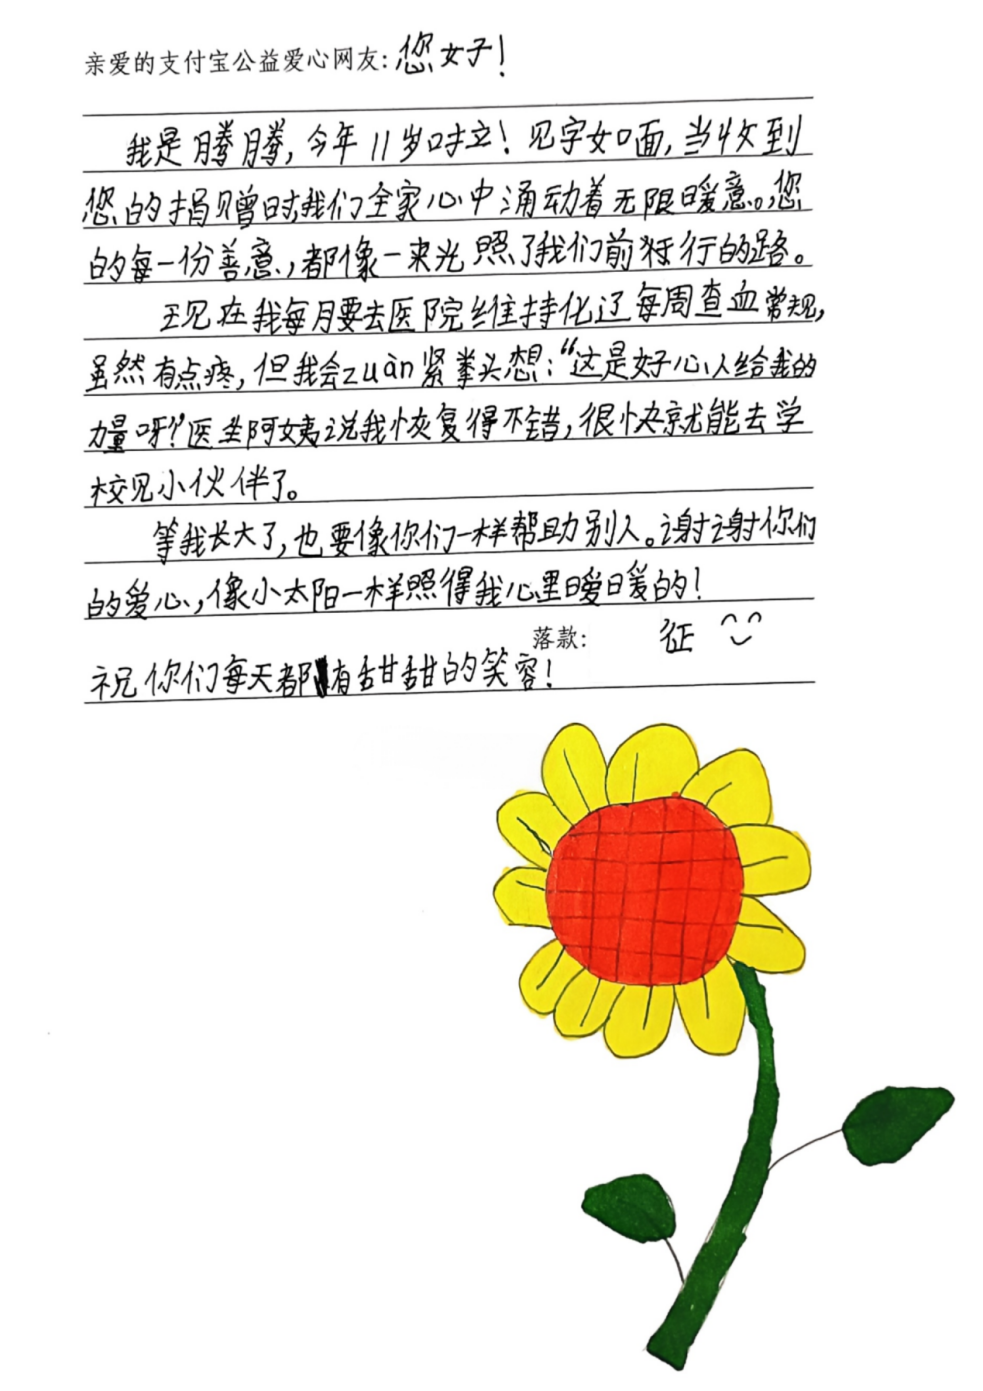 亲爱的支付宝公益爱心网友:您好!
我是腾腾,今年11岁啦!见字如面,当收到
您的捐赠时我们全家心中涌动着无限暖意。您
的每一份善意,都像一束光照了我们前行的路。
现在我每月要去医院维持化辽每周查血常规,
虽然有点疼,但我会zuàn紧拳头想:“这是好心人给我的
力量呀?”医生阿姨说我恢复得不错,很快就能去学
校见小伙伴了。
等我长大了,也要像你们一样帮助别人。谢谢你们
的爱心,像小太阳一样照得我心里暖暖的!
落款: 征
祝你们每天都有甜甜的笑容!